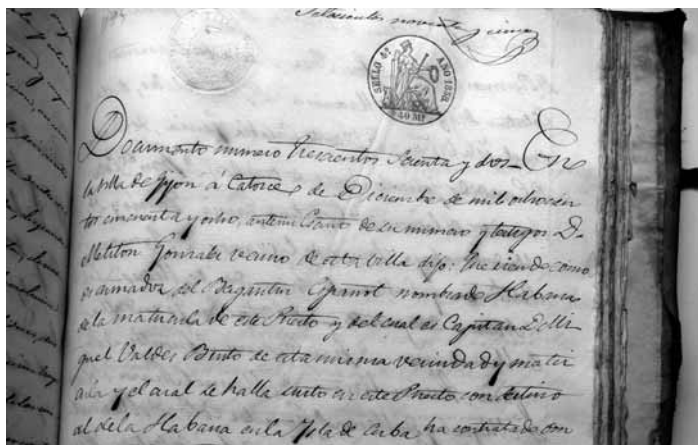 Setecientos noventa y cinco
SELLO 4º AÑO 1858
40 Ms
Documento numero trescientos setenta y dos_ En
la villa de Gijon á Catorce de Diciembre de mil ochocien
tos cincuenta y ocho, antemi Esano de su numero y testigos D.
Meliton Gonzalez vecino de esta villa dijo: Que siendo como
es armador del Bergantin Español nombrado Habana
de la matricula de este Puerto y del cual es Capitan D. Mi
guel Valdes Busto de esta misma vecindad y matri
cula y el cual se halla surto en este Puerto con destino
al de la Habana en la Ysla de Cuba ha contratado con